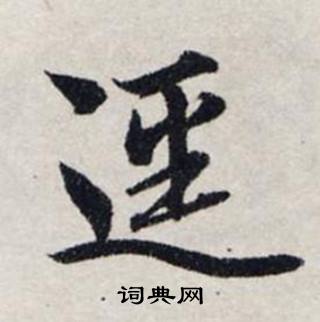 逕
词典网